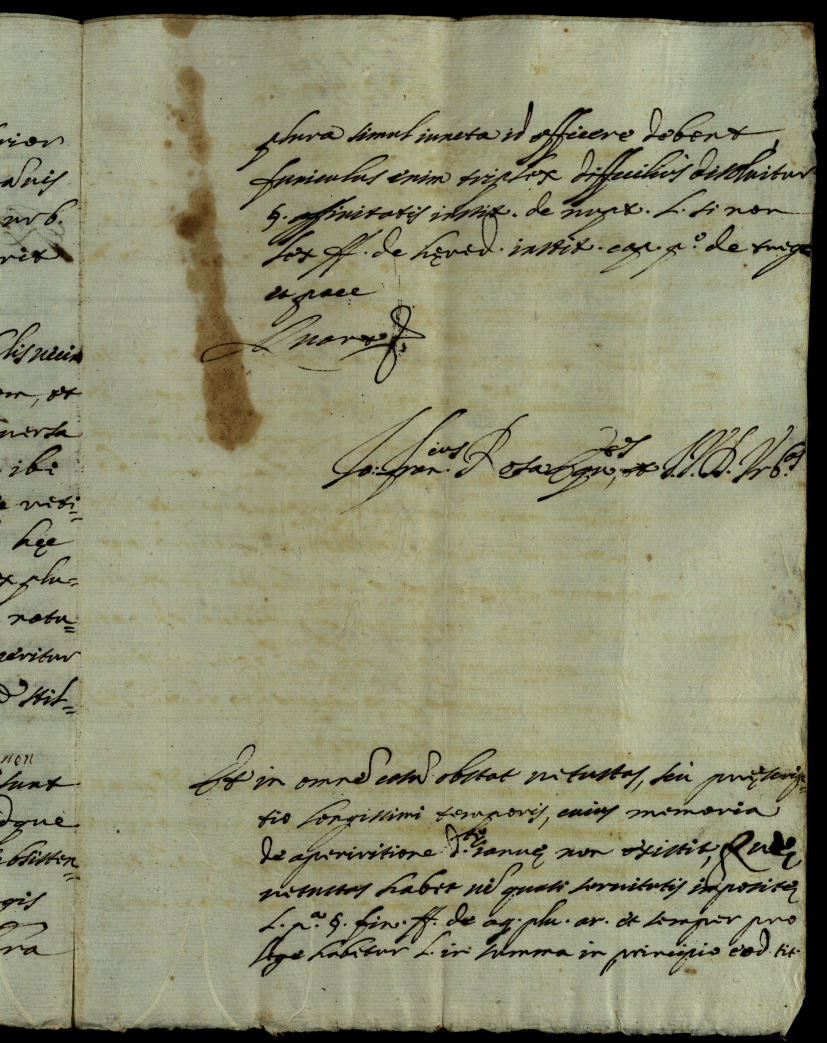 rior
auis
urb.
rit
lis uicin
em, et
uersa
ibi
e ueti=
hęc
ex plu=
natu=
peritur
stil=
non
sunt
dque
obsisten=
gis
plura simul iuncta id efficere debent,
funiculus enim triplex difficilius dissoluitur
§. affinitatis instit. de nupt. L. si non
lex ff. de hęred. instit. cap. p.º de treg
et pace
Io: Fran.cus Rosa et I.V.D. Vrb.
Et in omnẽ casũ obstat uetustas, seu pręscrip=
tio longissimi temporis, cuius memoria
de aperiritione d.tę ianuę non existit, Quę
uetustas habet uĩ quasi seruitutis impositę
L. p.ª §. fin. ff. de aq. plu. ar. et semper pro
lege habetur L. in summa in principio eod tit